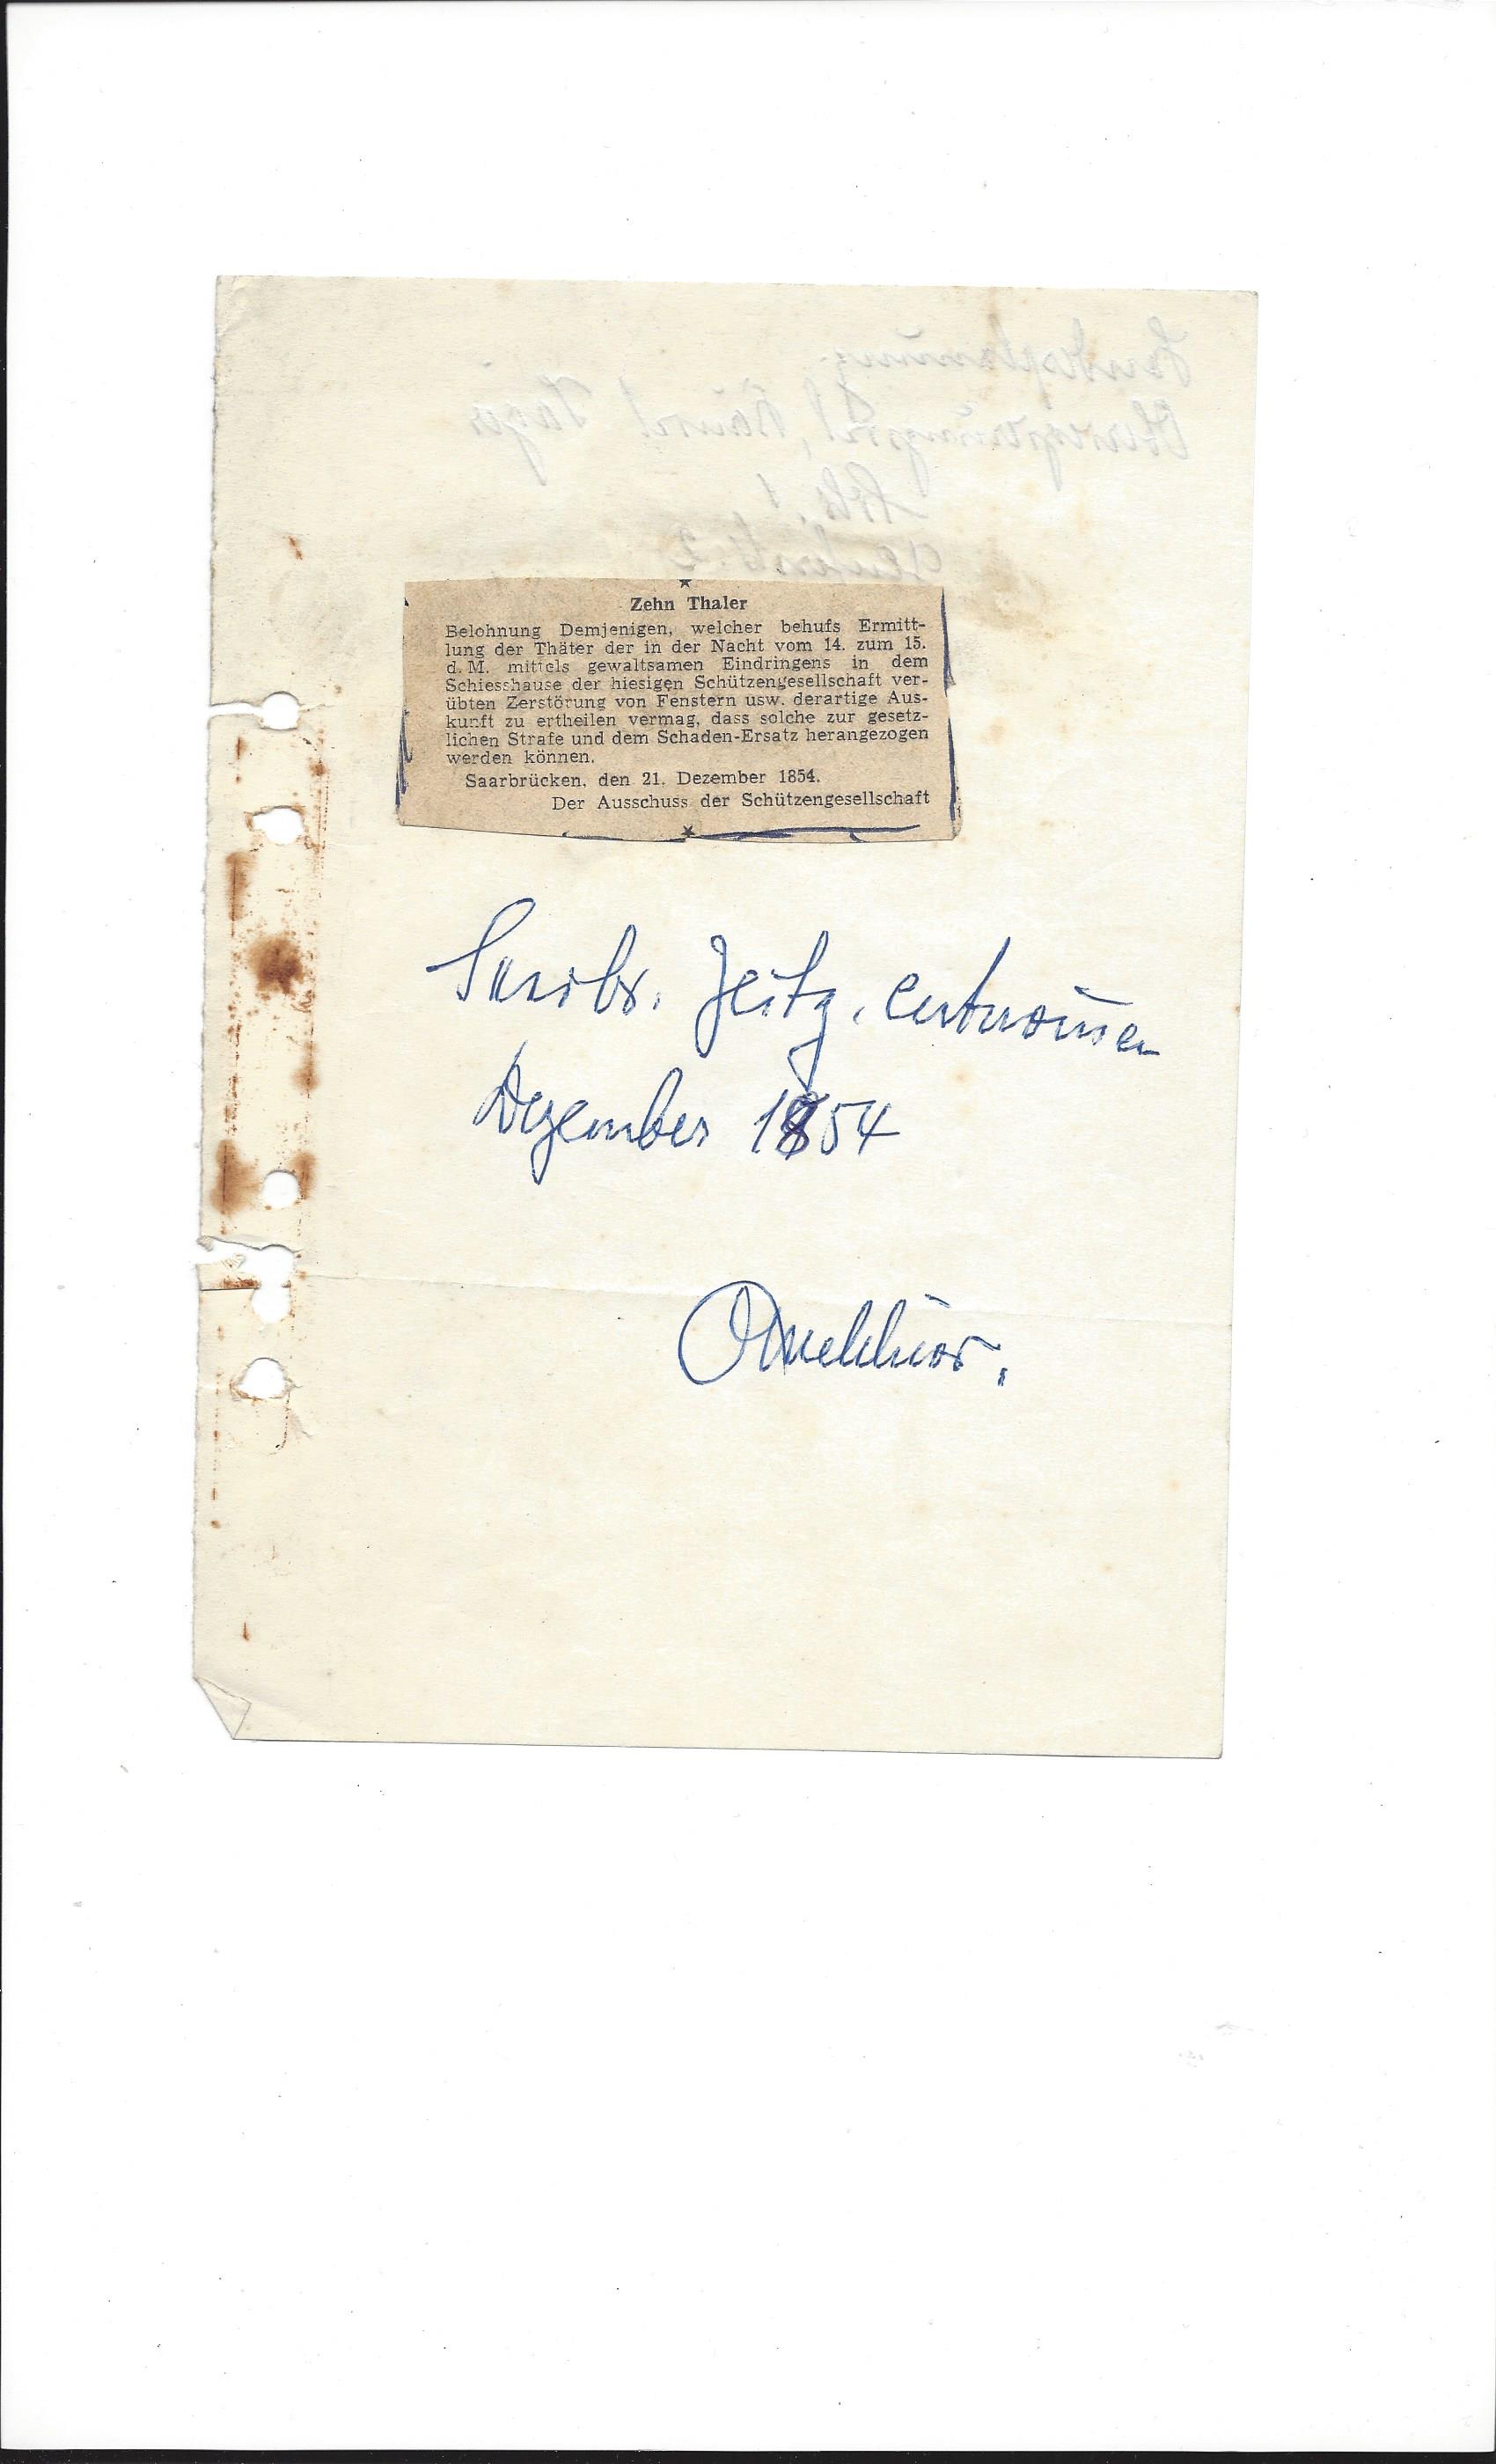 Zehn Thaler
Belohnung Demjenigen, welcher behufs Ermitt-
lung der Thäter der in der Nacht vom 14. zum 15.
d. M. mittels gewaltsamen Eindringens in dem
Schiesshause der hiesigen Schützengesellschaft ver-
übten Zerstörung von Fenstern usw. derartige Aus-
kunft zu ertheilen vermag, dass solche zur gesetz-
lichen Strafe und dem Schaden-Ersatz herangezogen
werden können.
Saarbrücken, den 21. Dezember 1854.
Der Ausschuss der Schützengesellschaft
Saarbr. Zeitg. entnom̄en
Dezember 1854